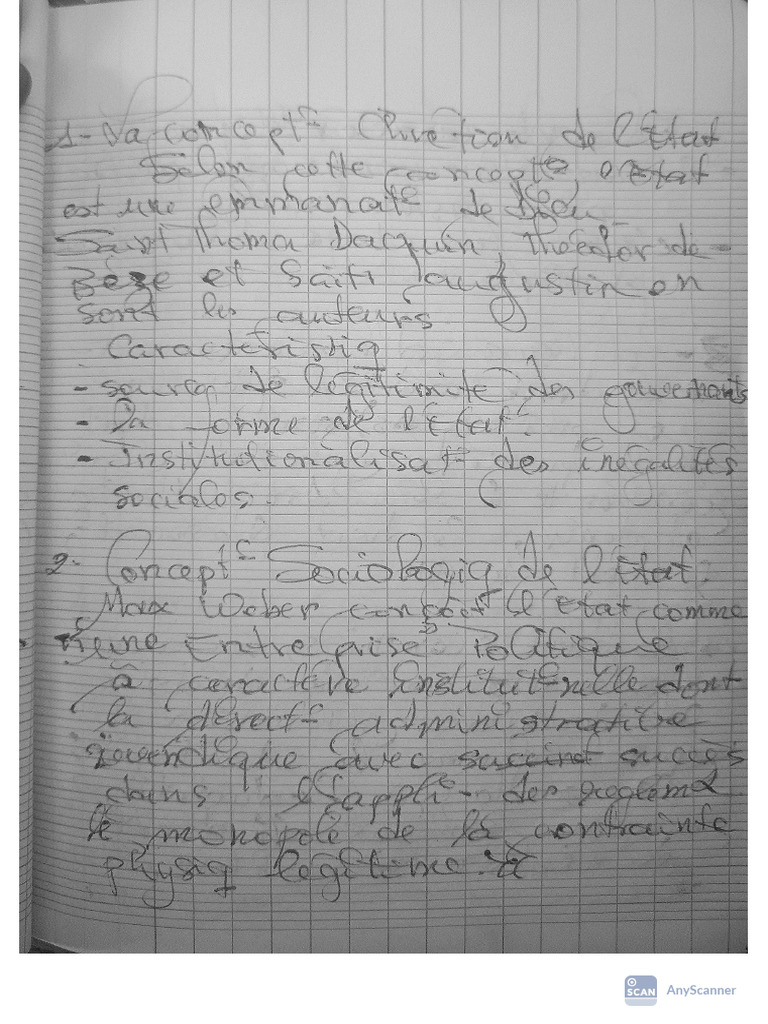 1- La concept° Chrétien de l'Etat
Selon cette concept°, l'Etat
est une emmanat° de Dieu
Saint Thoma Daquin, Théodor de
Bèze et Saint augustin en
sont les auteurs.
Caractéristiq
- source de légitimité des gouvernants
- La forme de l'Etat.
- Institutionalisat° des inégalités
sociales.
2- Concept° Sociologiq de l'Etat.
Max Weber conçoit l'Etat comme
une Entreprise Politique
à caractère institut°nelle dont
la direct° administrative
revendique avec succès
dans l'appli° des règlem
le monopole de la contrainte
physiq légitime.
SCAN AnyScanner